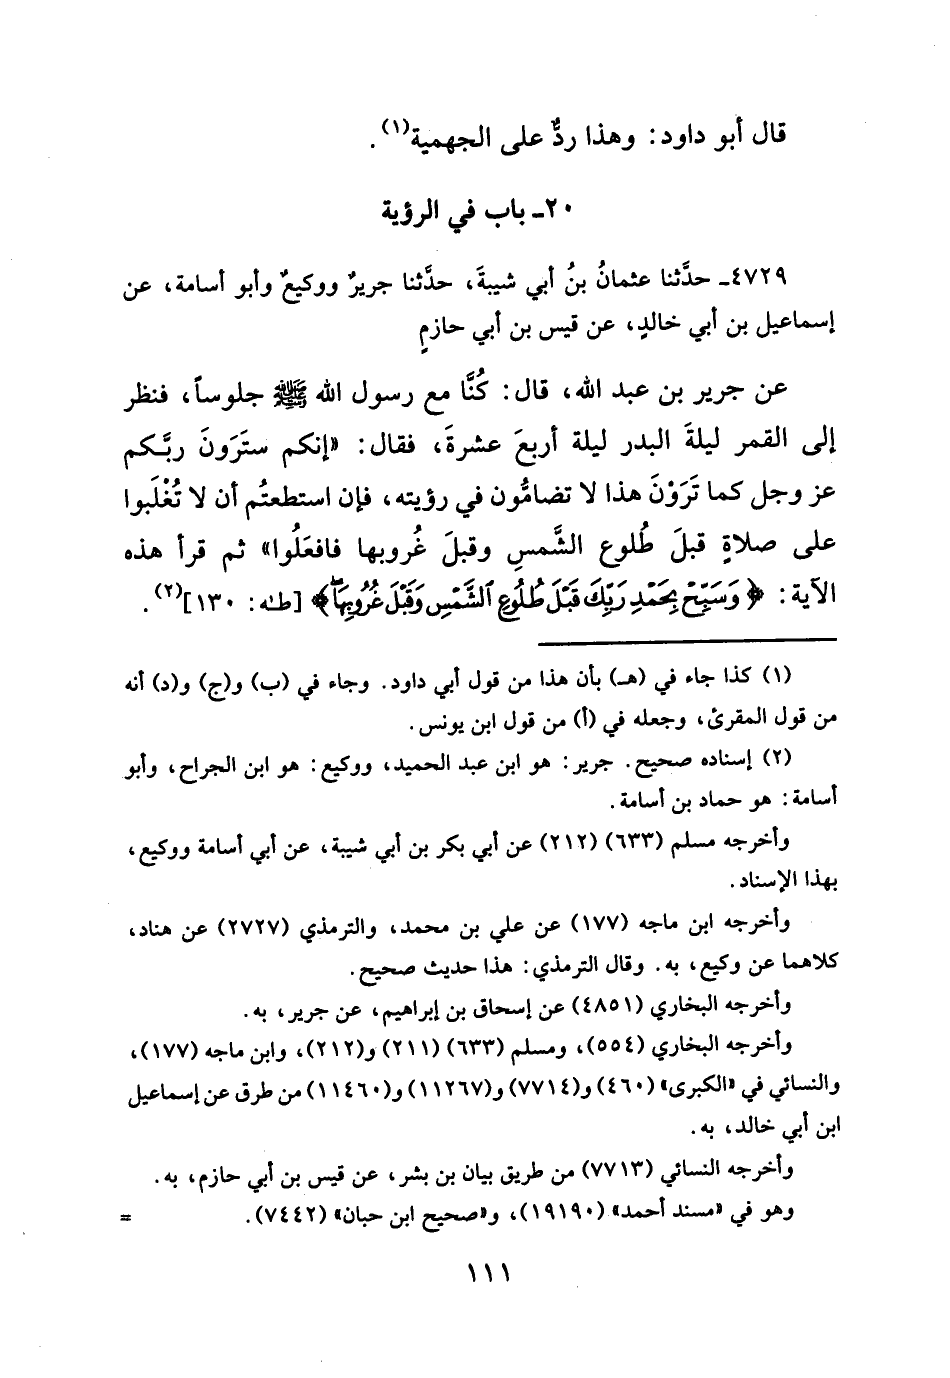 قال أبو داود: وهذا ردٌّ على الجهمية(١).
٢٠ـ باب في الرؤية
٤٧٢٩ـ حدَّثنا عثمانُ بنُ أبي شيبةَ، حدَّثنا جريرٌ ووكيعٌ وأبو أسامة، عن
إسماعيل بن أبي خالدٍ، عن قيس بن أبي حازمٍ
عن جرير بن عبد الله، قال: كُنَّا مع رسول الله ﷺ جلوساً، فنظر
إلى القمر ليلةَ البدر ليلة أربعَ عشرةَ، فقال: «إنكم ستَرَونَ ربَّكم
عز وجل كما تَرَوْنَ هذا لا تضامُّون في رؤيته، فإن استطعتُم أن لا تُغْلَبوا
على صلاةٍ قبلَ طُلوع الشَّمسِ وقبلَ غُروبها فافعَلُوا» ثم قرأ هذه
الآية: ﴿وَسَبِّحْ بِحَمْدِ رَبِّكَ قَبْلَ طُلُوعِ ٱلشَّمْسِ وَقَبْلَ غُرُوبِهَا﴾ [طه: ١٣٠](٢).
(١) كذا جاء في (هـ) بأن هذا من قول أبي داود. وجاء في (ب) و(ج) و(د) أنه
من قول المقرئ، وجعله في (أ) من قول ابن يونس.
(٢) إسناده صحيح. جرير: هو ابن عبد الحميد، ووكيع: هو ابن الجراح، وأبو
أسامة: هو حماد بن أسامة.
وأخرجه مسلم (٦٣٣) (٢١٢) عن أبي بكر بن أبي شيبة، عن أبي أسامة ووكيع،
بهذا الإسناد.
وأخرجه ابن ماجه (١٧٧) عن علي بن محمد، والترمذي (٢٧٢٧) عن هناد،
كلاهما عن وكيع، به. وقال الترمذي: هذا حديث صحيح.
وأخرجه البخاري (٤٨٥١) عن إسحاق بن إبراهيم، عن جرير، به.
وأخرجه البخاري (٥٥٤)، ومسلم (٦٣٣) (٢١١) و(٢١٢)، وابن ماجه (١٧٧)،
والنسائي في «الكبرى» (٤٦٠) و(٧٧١٤) و(١١٢٦٧) و(١١٤٦٠) من طرق عن إسماعيل
ابن أبي خالد، به.
وأخرجه النسائي (٧٧١٣) من طريق بيان بن بشر، عن قيس بن أبي حازم، به.
وهو في «مسند أحمد» (١٩١٩٠)، و«صحيح ابن حبان» (٧٤٤٢). =
١١١